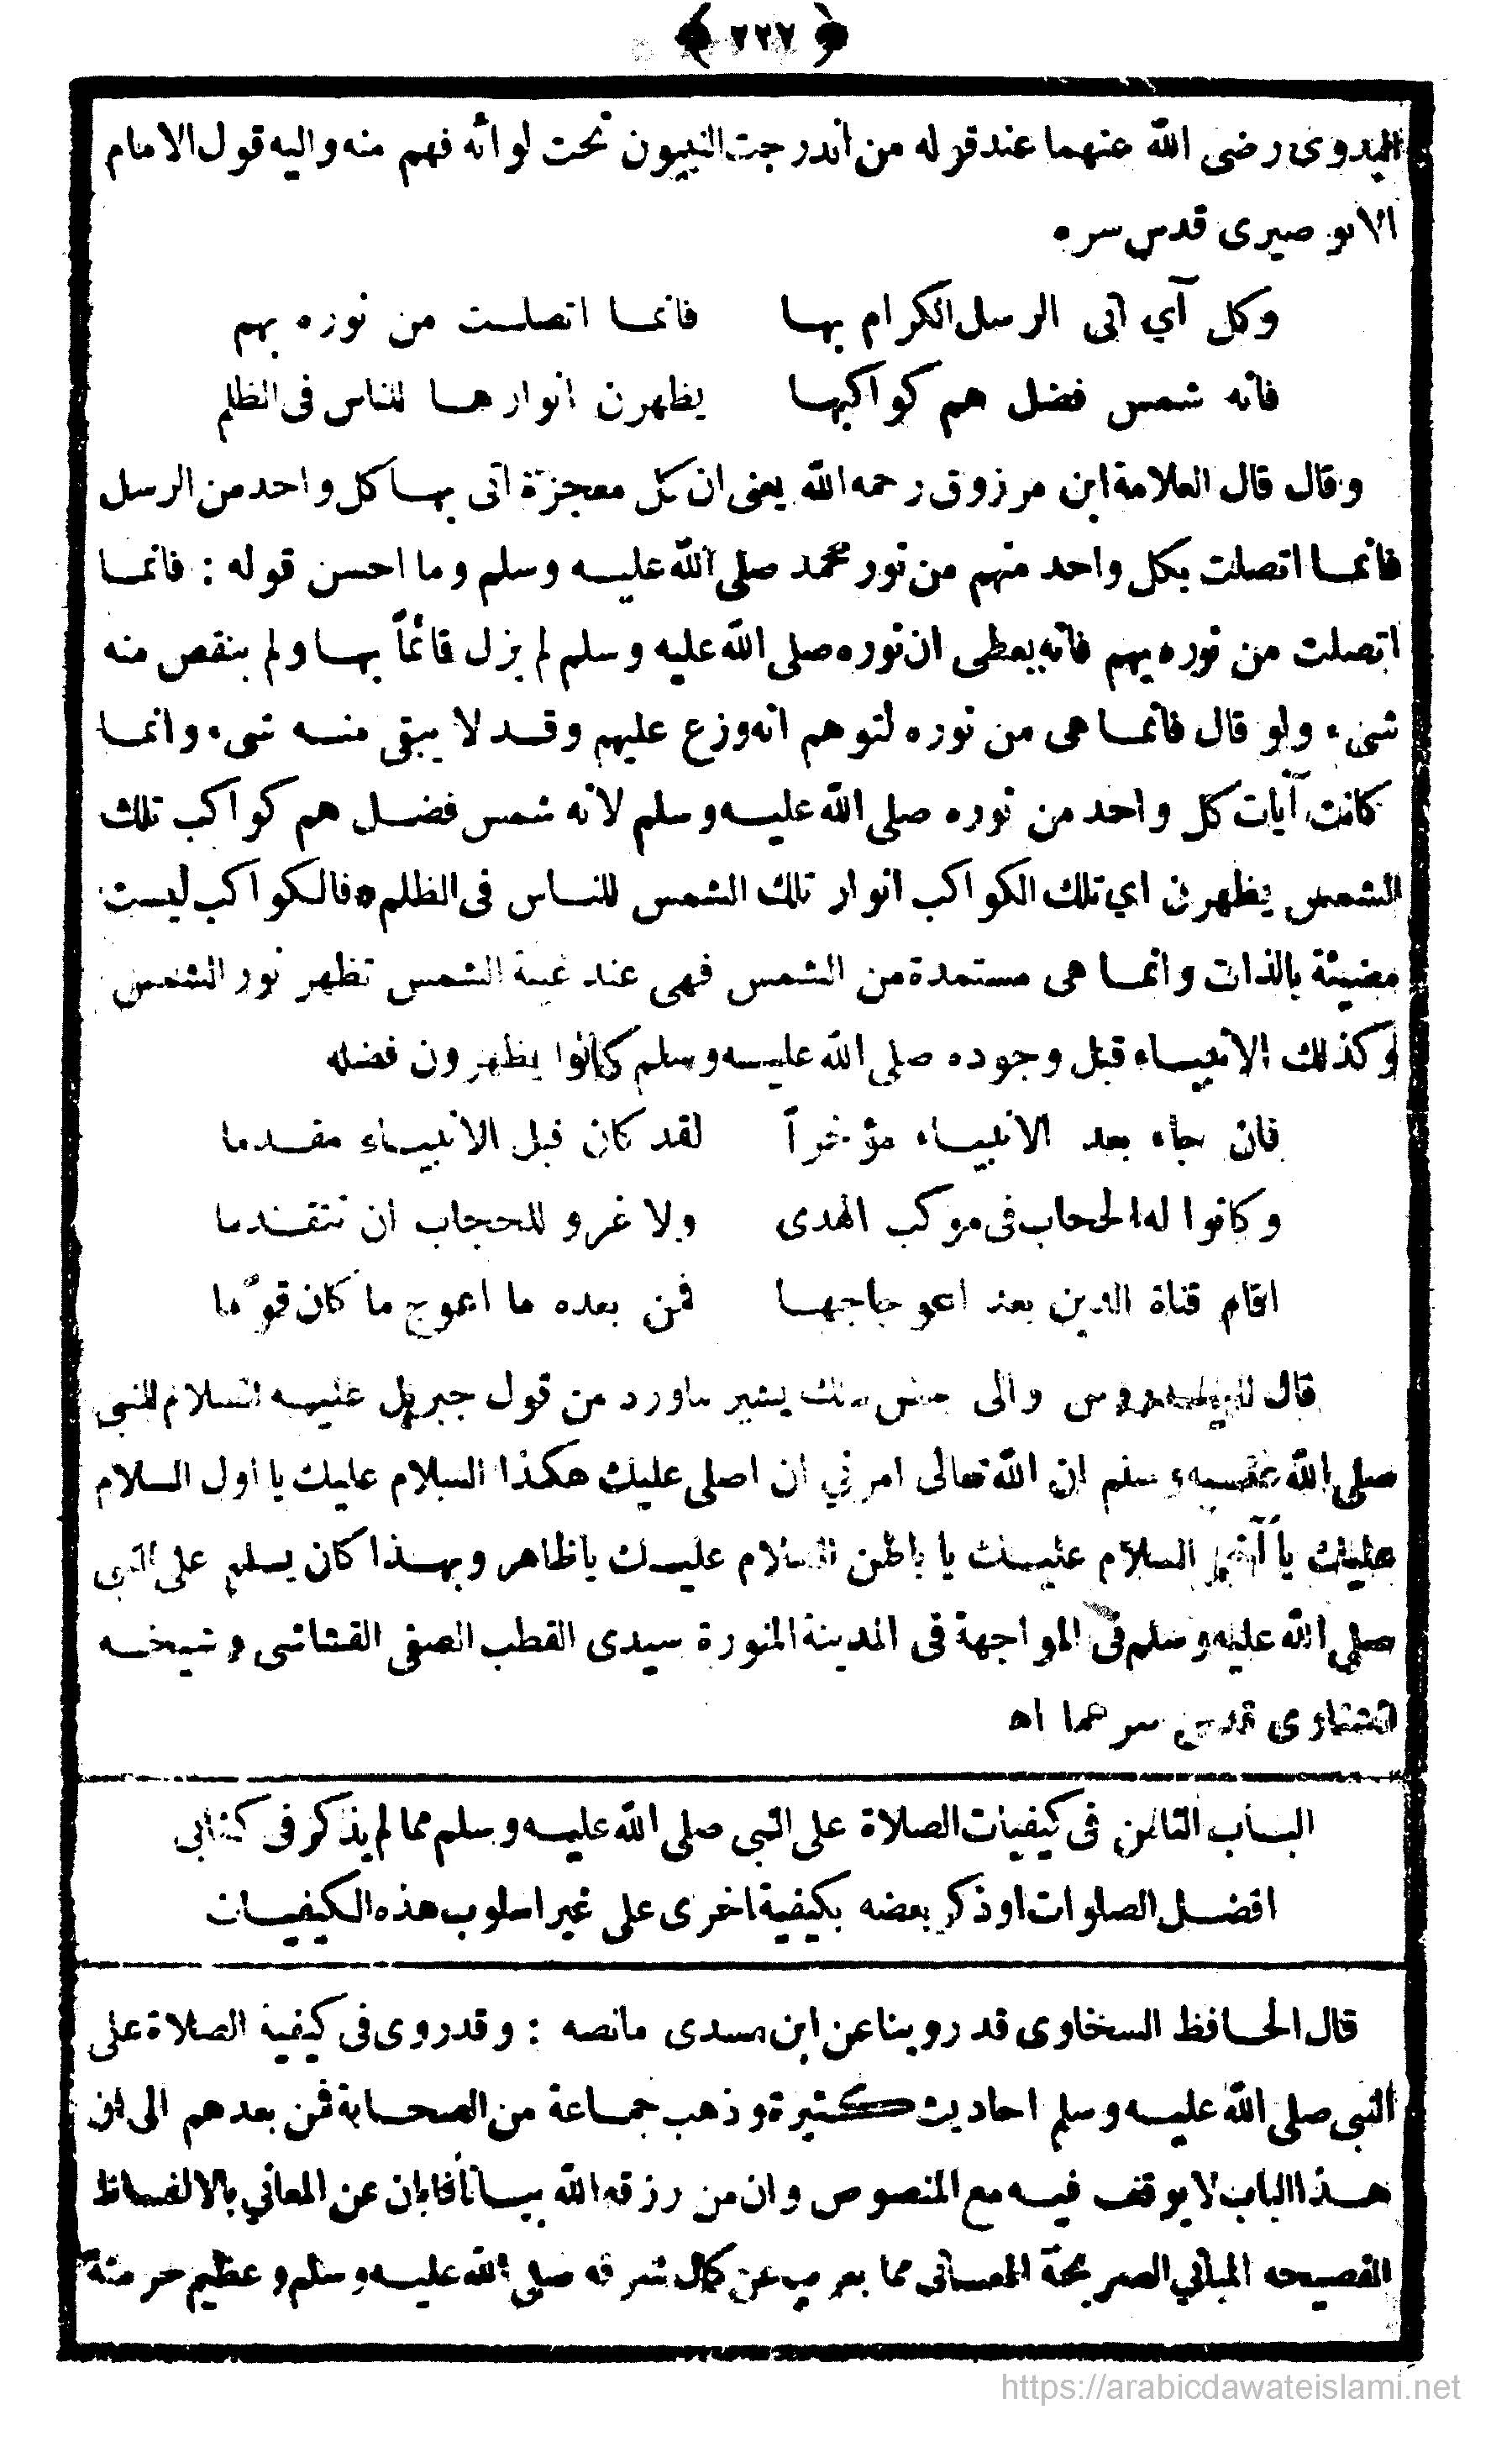 ﴿ ٢٢٧ ﴾
البدوي رضى الله عنهما عند قوله من اندرجت النبيون تحت لوائه فهم منه واليه قول الامام
الابوصيرى قدس سره
وكل آي اتى الرسل الكرام بها فانمـا اتصلـت من نوره بهم
فانه شمس فضل هم كواكبها يظهرن انوارهـا للناس فى الظلم
وقال قال العلامة ابن مرزوق رحمه الله يعنى ان كل معجزة اتى بهـا كل واحد من الرسل
فانمـا اتصلت بكل واحد منهم من نور محمد صلى الله عليـه وسلم وما احسن قوله : فانمـا
اتصلت من نوره بهم فانه يعطى ان نوره صلى الله عليه وسلم لم يزل قائماً بهـا ولم ينقص منه
شىء ولو قال فانمـا هى من نوره لتوهم انه وزع عليهم وقـد لا يبقى منـه شىء وانمـا
كانت آيات كل واحد من نوره صلى الله عليـه وسلم لانه شمس فضـل هم كواكب تلك
الشمس يظهرن اي تلك الكواكب انوار تلك الشمس للنـاس فى الظلم ٥ فالكواكب ليست
مضيئة بالذات وانمـا هى مستمدة من الشمس فهى عند غيبة الشمس تظهر نور الشمس
وكذلك الانبيـاء قبل وجوده صلى الله عليـه وسلم كانوا يظهرون فضله
فان جاء بعد الانبيـاء مؤخراً لقد كان قبل الانبيـاء مقـدما
وكانوا له الحجاب فى موكب الهدى ولا غرو للحجاب ان تتقـدما
اقام قناة الدين بعد اعوجاجهـا فمن بعده ما اعوج ما كان قوّما
قال العيدروس والى يشير ماورد من قول جبريل عليـه السلام للنبى
صلى الله عليـه وسلم ان الله تعالى امرني ان اصلى عليك هكذا السلام عليك يا اول السلام
عليك يا آخر السلام عليـك يا باطن السلام عليـك ياظاهر وبهـذا كان يسلم على النبى
صلى الله عليه وسلم فى المواجهة فى المدينة المنورة سيدى القطب الصفى القشاشى وشيخـه
الشناوى قدس سرهما اه
البـاب الثامن فى كيفيات الصلاة على النبى صلى الله عليـه وسلم مما لم يذكر فى كتابى
افضـل الصلوات او ذكر بعضه بكيفية اخرى على غير اسلوب هذه الكيفيـات
قال الحـافظ السخاوى قد روينا عن ابن مسدى مانصه : وقد روى فى كيفية الصلاة على
النبى صلى الله عليـه وسلم احاديث كثيرة وذهب جمـاعة من الصحـابة فمن بعدهم الى ان
هـذا الباب لا يوقف فيـه مع المنصوص وان من رزقه الله بيـاناً فابان عن المعاني بالالفـاظ
الفصيحه المباني الصريحة المعـانى مما يعرب عن كمال شرفه صلى الله عليـه وسلم وعظيم حرمته
https://arabicdawateislami.net